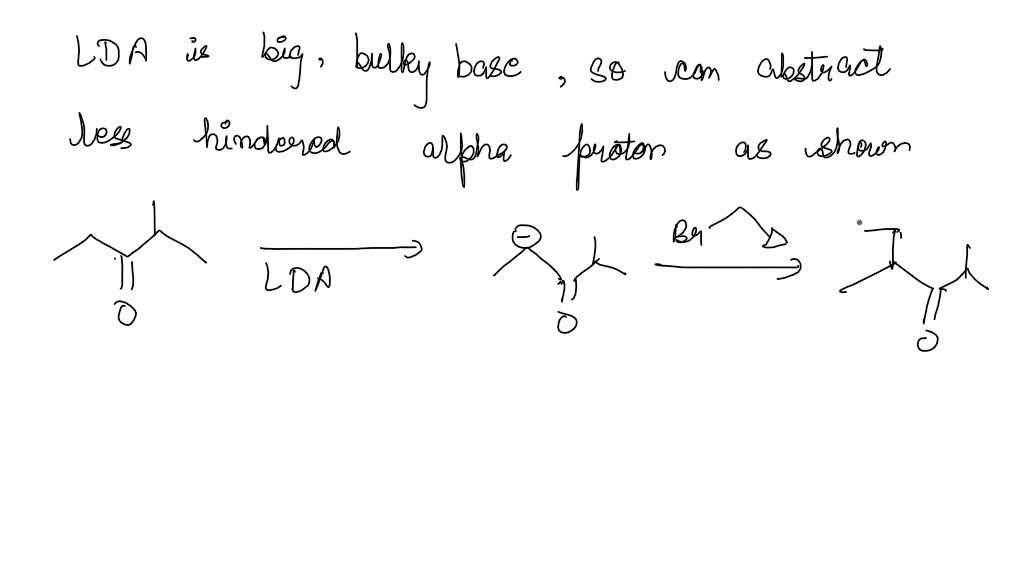 LDA is big, bulky base, so can abstract
less hindered alpha proton as shown
⊖ Br
LDA
O O O